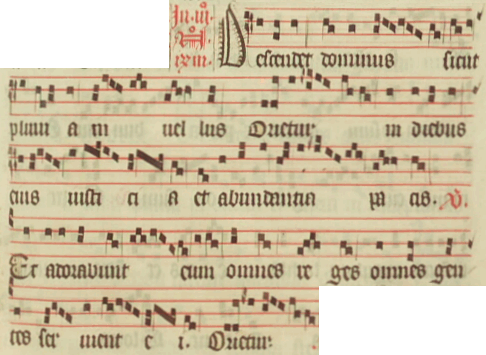 In. iii.
R.
lxiii. Descendet dominus sicut
pluui a in uel lus Orietur in diebus
eius iusti ci a et abundantia pa cis. V.
Et adorabunt eum omnes re ges omnes gen
tes ser uient e i. Orietur.